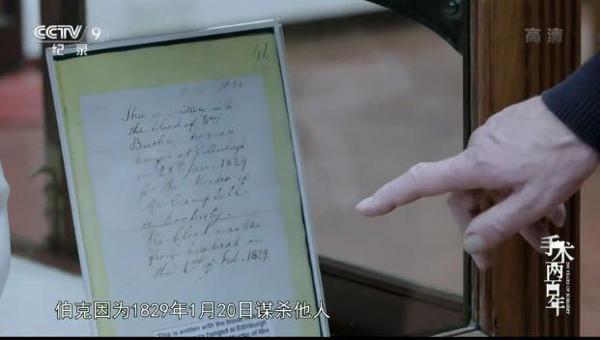 CCTV 9
纪录
高清
No 52
This is written with
the blood of Wm
Burke, he was
hanged at Edinburgh
on 28th Jan. 1829
for the Murder of
Mrs Campbell
or Docherty.
The blood was taken
from his head on
the 1st of Feb. 1829.
手术两百年
伯克因为1829年1月20日谋杀他人
THIS is written with the blood
hanged at Edinburgh
Murder of Mrs